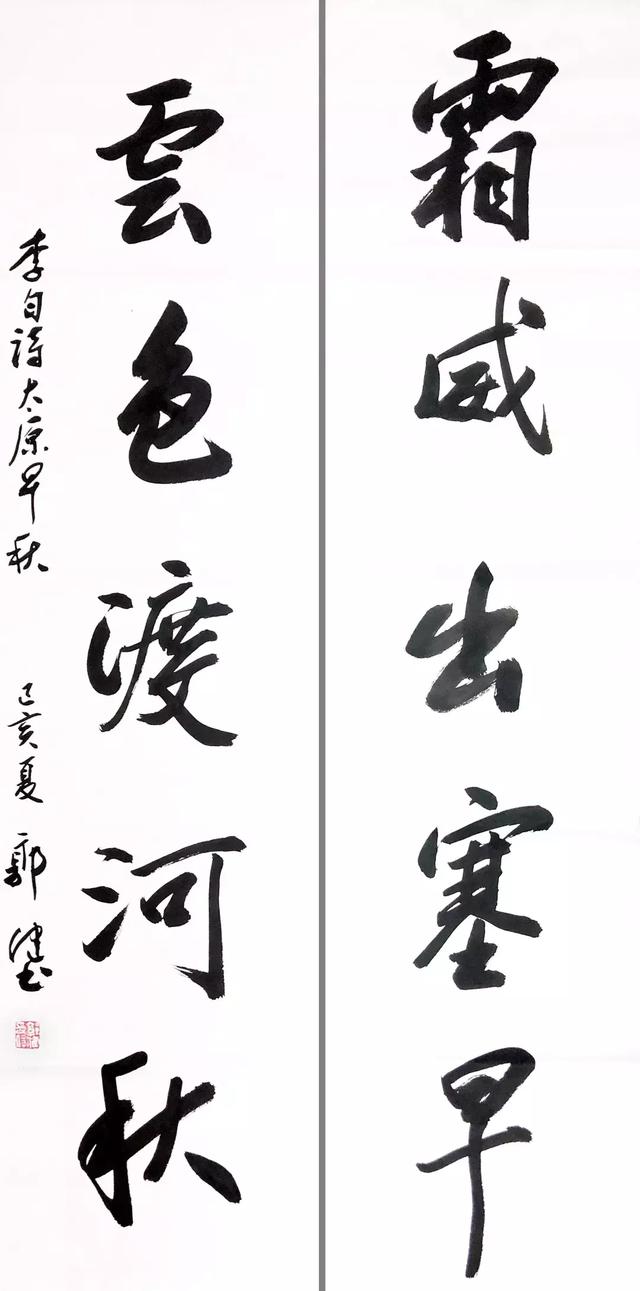 霜威出塞早
雲色渡河秋
李白詩太原早秋
己亥夏 郭健書